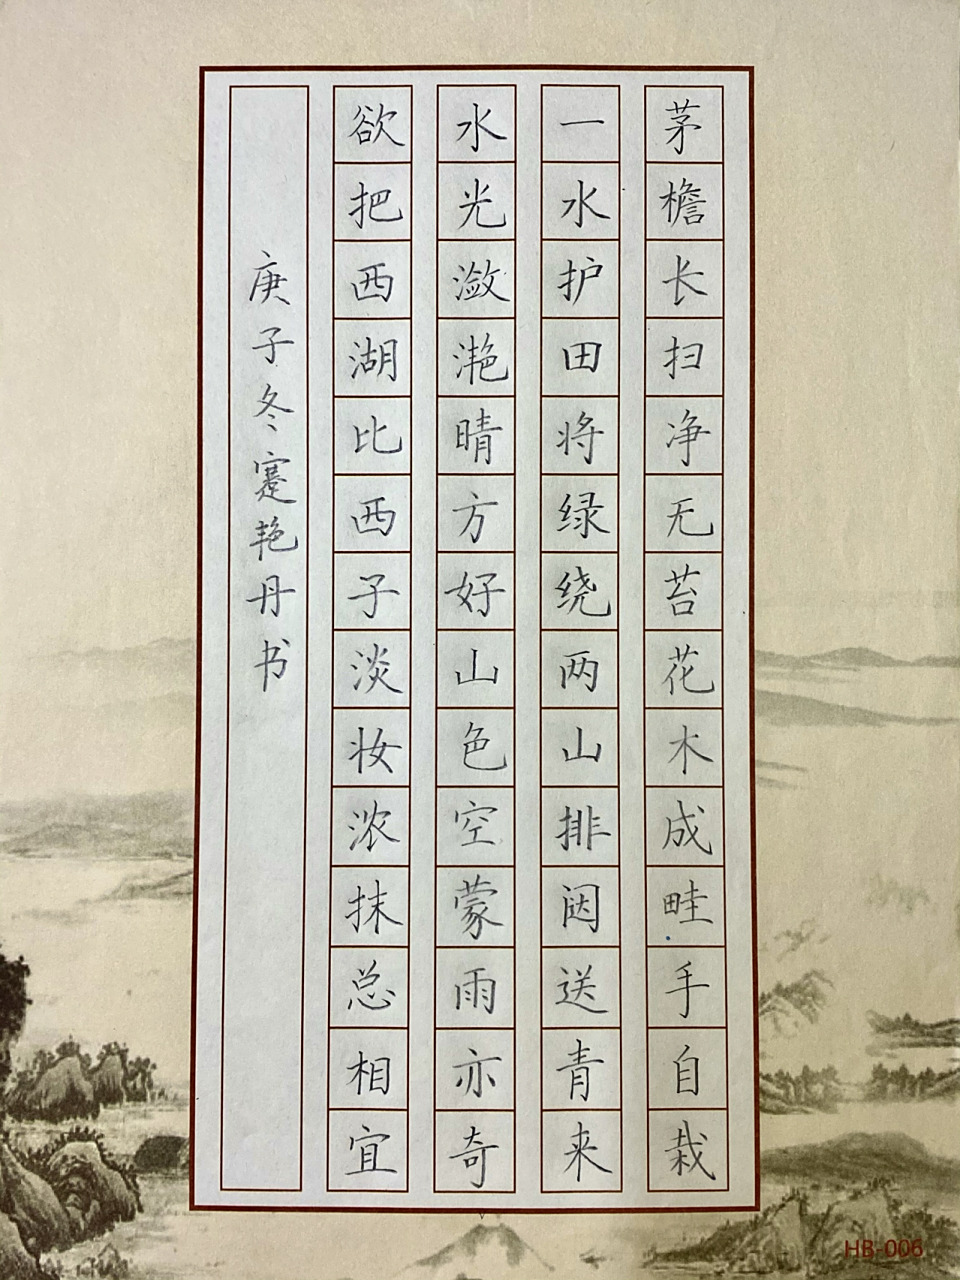 茅檐长扫净无苔花木成畦手自栽
一水护田将绿绕两山排闼送青来
水光潋滟晴方好山色空蒙雨亦奇
欲把西湖比西子淡妆浓抹总相宜
庚子冬蹇艳丹书
HB-006